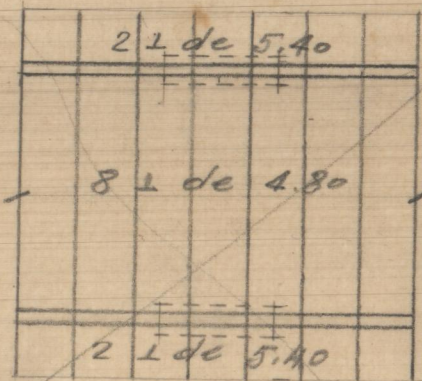 2 ⊥ de 5.40
8 ⊥ de 4.80
2 ⊥ de 5.40